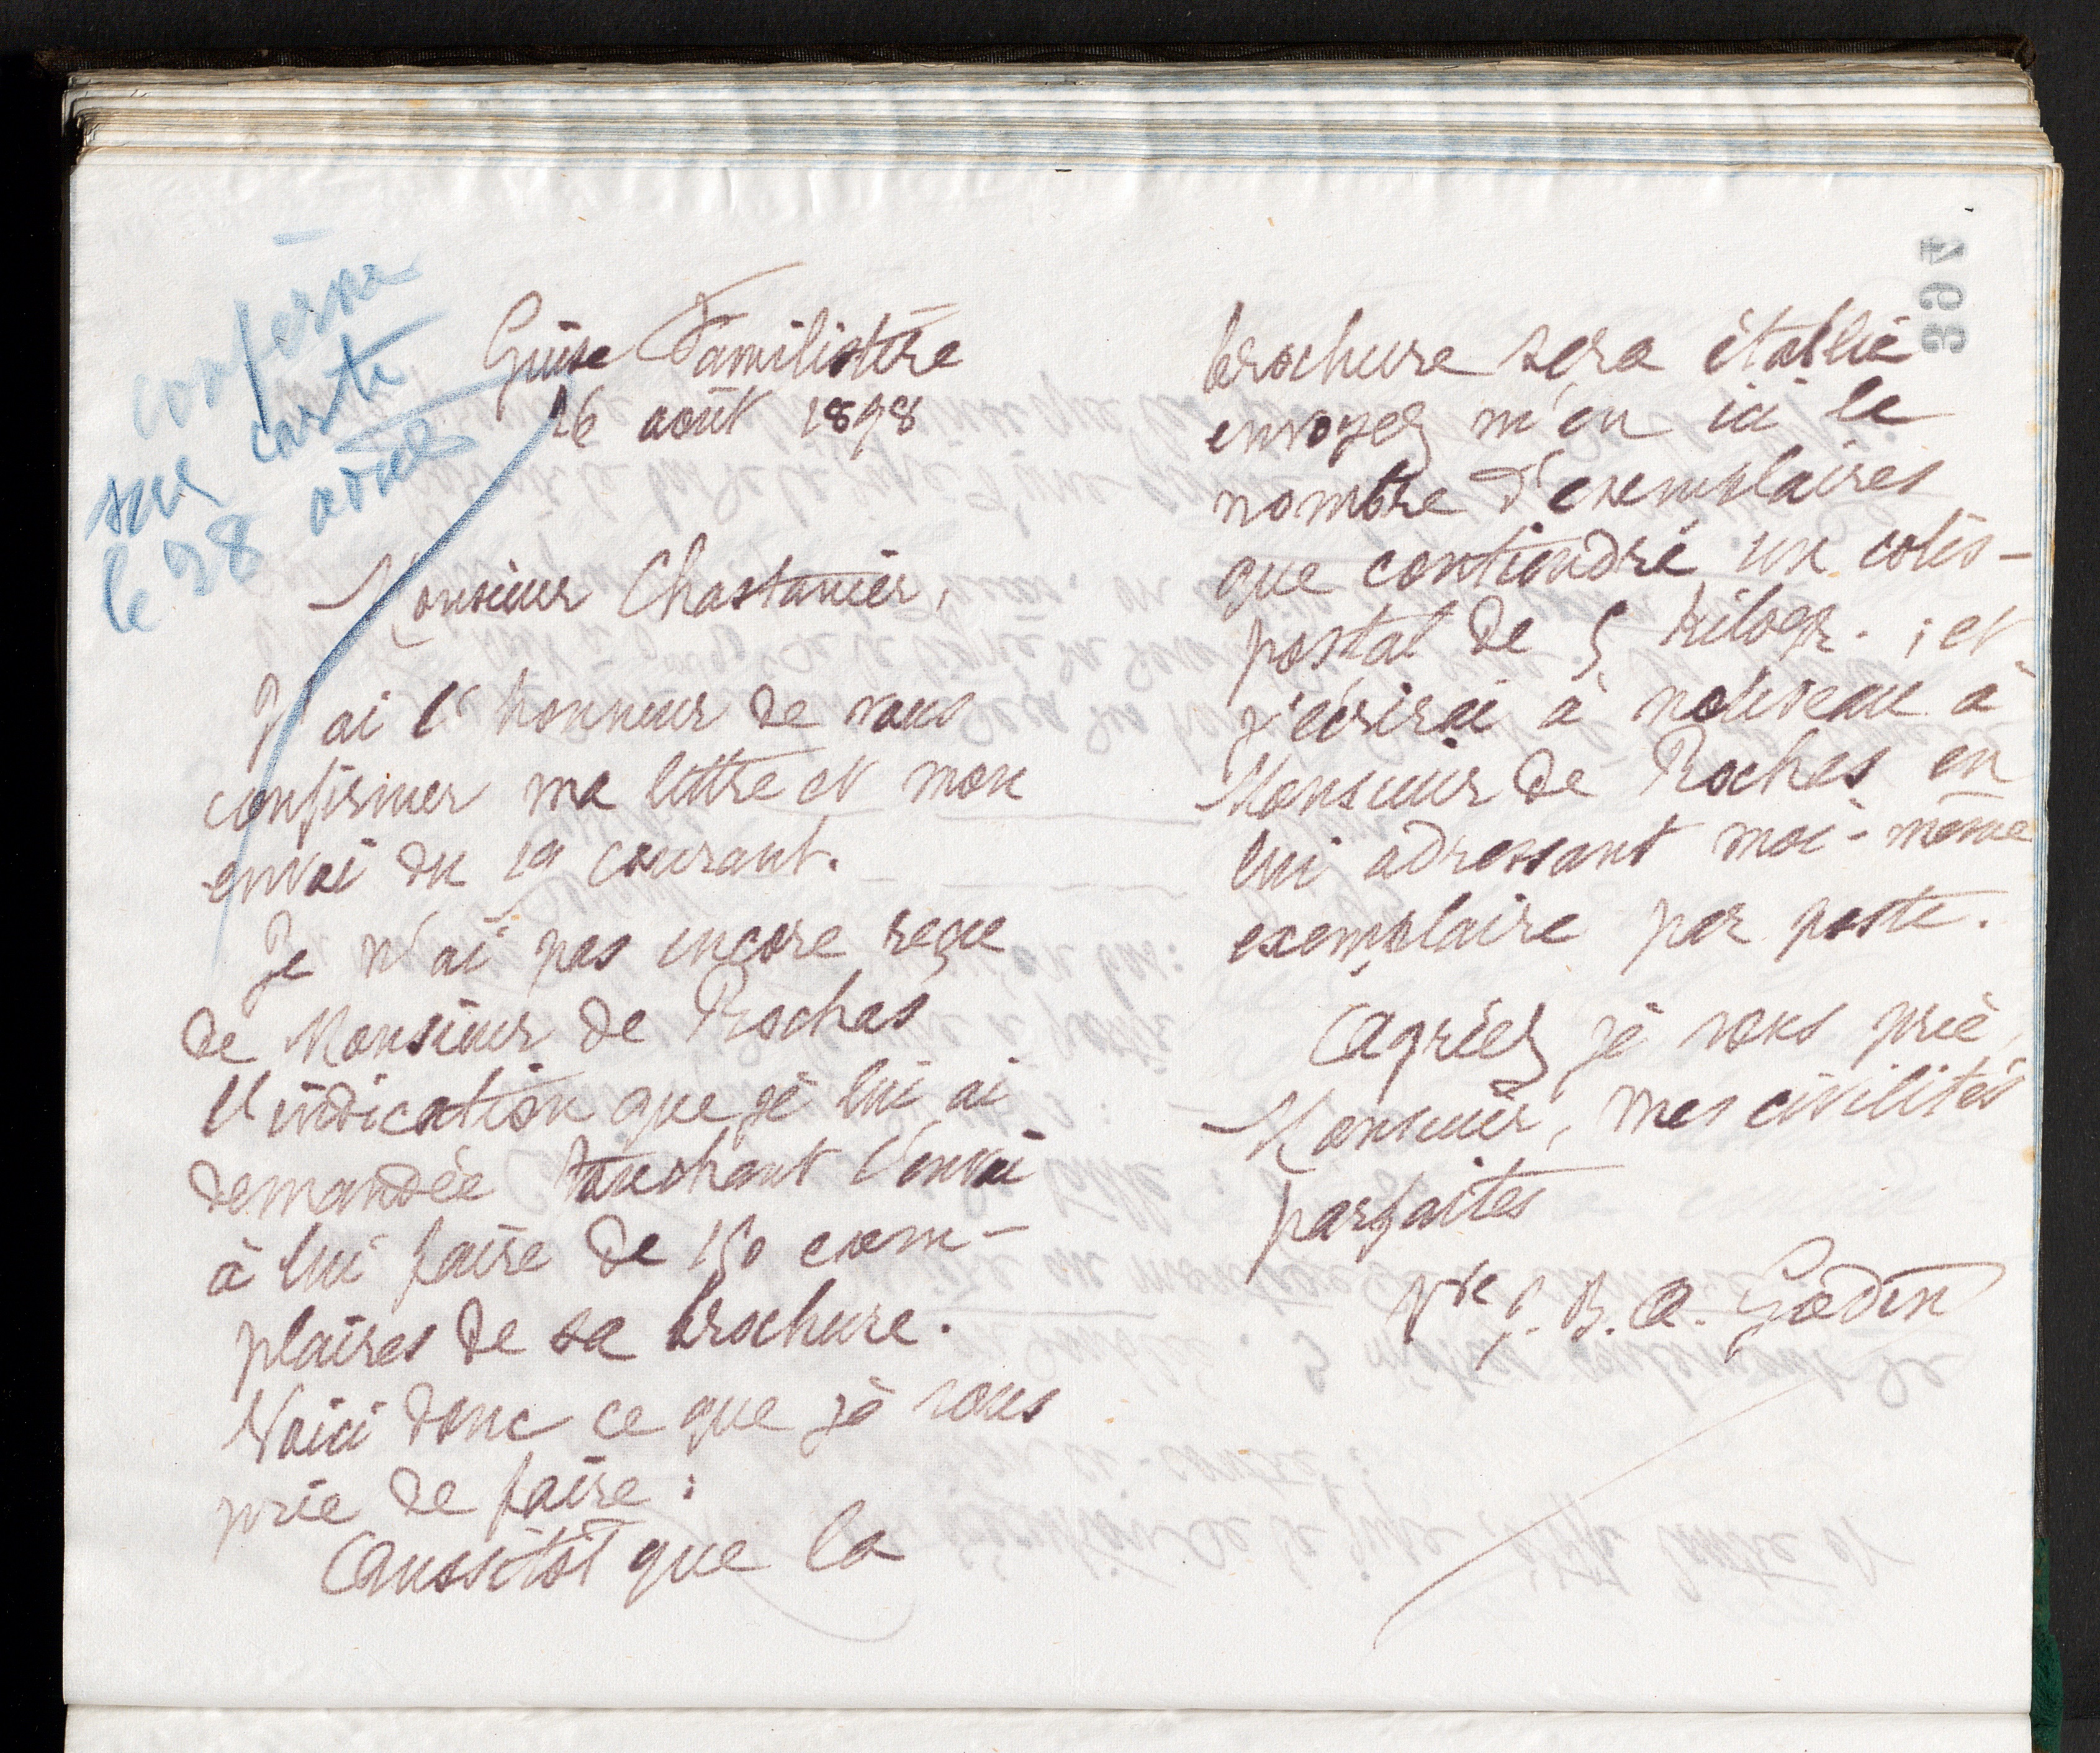 confirmé
sur carte
le 28 août
Guise Familistère
26 août 1898
Monsieur Chastanier,
J'ai l'honneur de vous
confirmer ma lettre et mon
envoi du 19 courant.
Je n'ai pas encore reçu
de Monsieur de Rochas
l'indication que je lui ai
demandée touchant l'envoi
à lui faire de 150 exem-
plaires de sa brochure.
Voici donc ce que je vous
prie de faire :
Aussitôt que la
brochure sera établie
envoyez m'en ici le
nombre d'exemplaires
que contiendra un colis-
postal de 5 kilogr. ; et
j'écrirai à nouveau à
Monsieur de Rochas en
lui adressant moi-même
exemplaire par poste.
Agréez je vous prie,
Monsieur, mes civilités
parfaites
Vve J. B. A. Godin
397